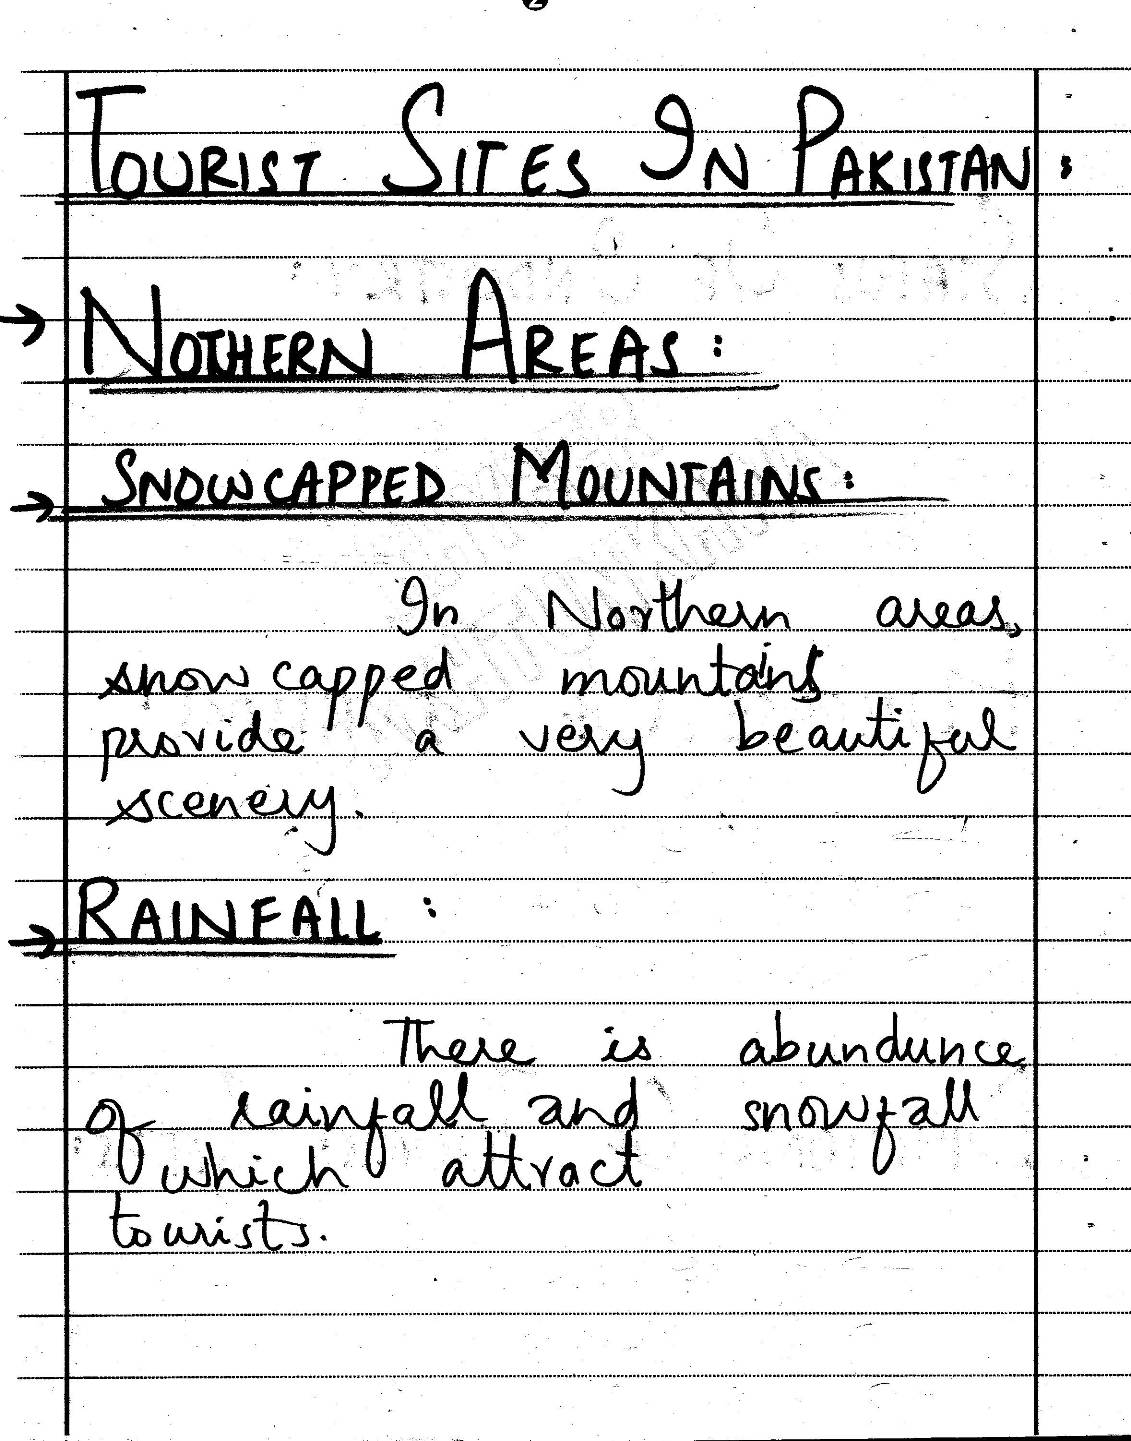 TOURIST SITES IN PAKISTAN:
→ NOTHERN AREAS:
→ SNOWCAPPED MOUNTAINS:
In Northern areas,
snow capped mountains
provide a very beautiful
scenery.
→ RAINFALL :
There is abundunce
of rainfall and snowfall
which attract
tourists.